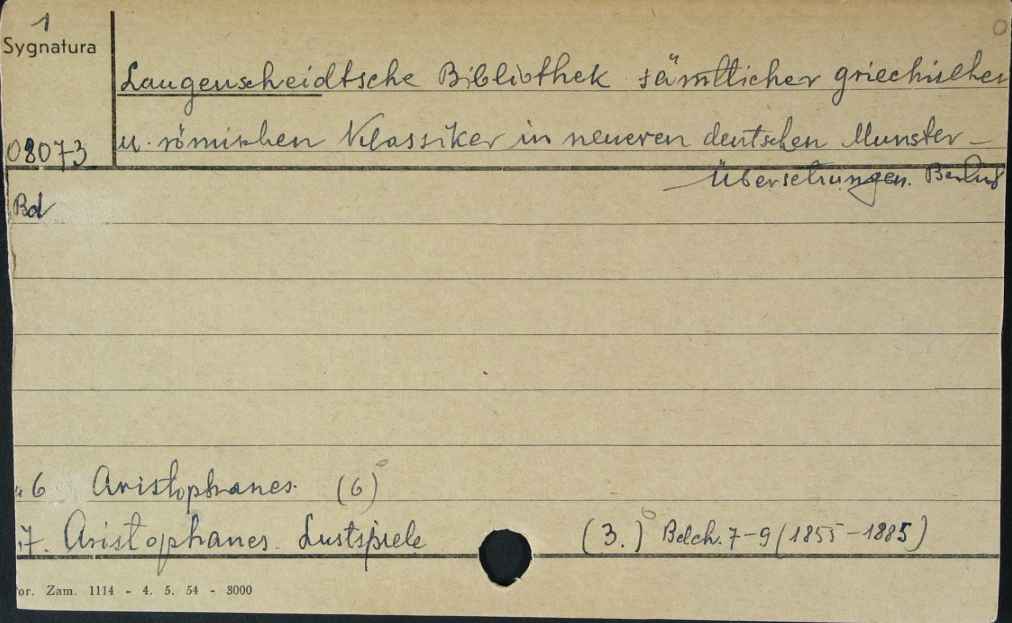 1
Sygnatura
Langenscheidtsche Bibliothek sämtlicher griechischer
08073
u. römischen Klassiker in neueren deutschen Munster-
Übersetzungen. Berlin
Bd
" 6 Aristophanes. (6)
7. Aristophanes. Lustspiele (3.) Bdch. 7-9 (1855-1885)
or. Zam. 1114 - 4. 5. 54 - 3000